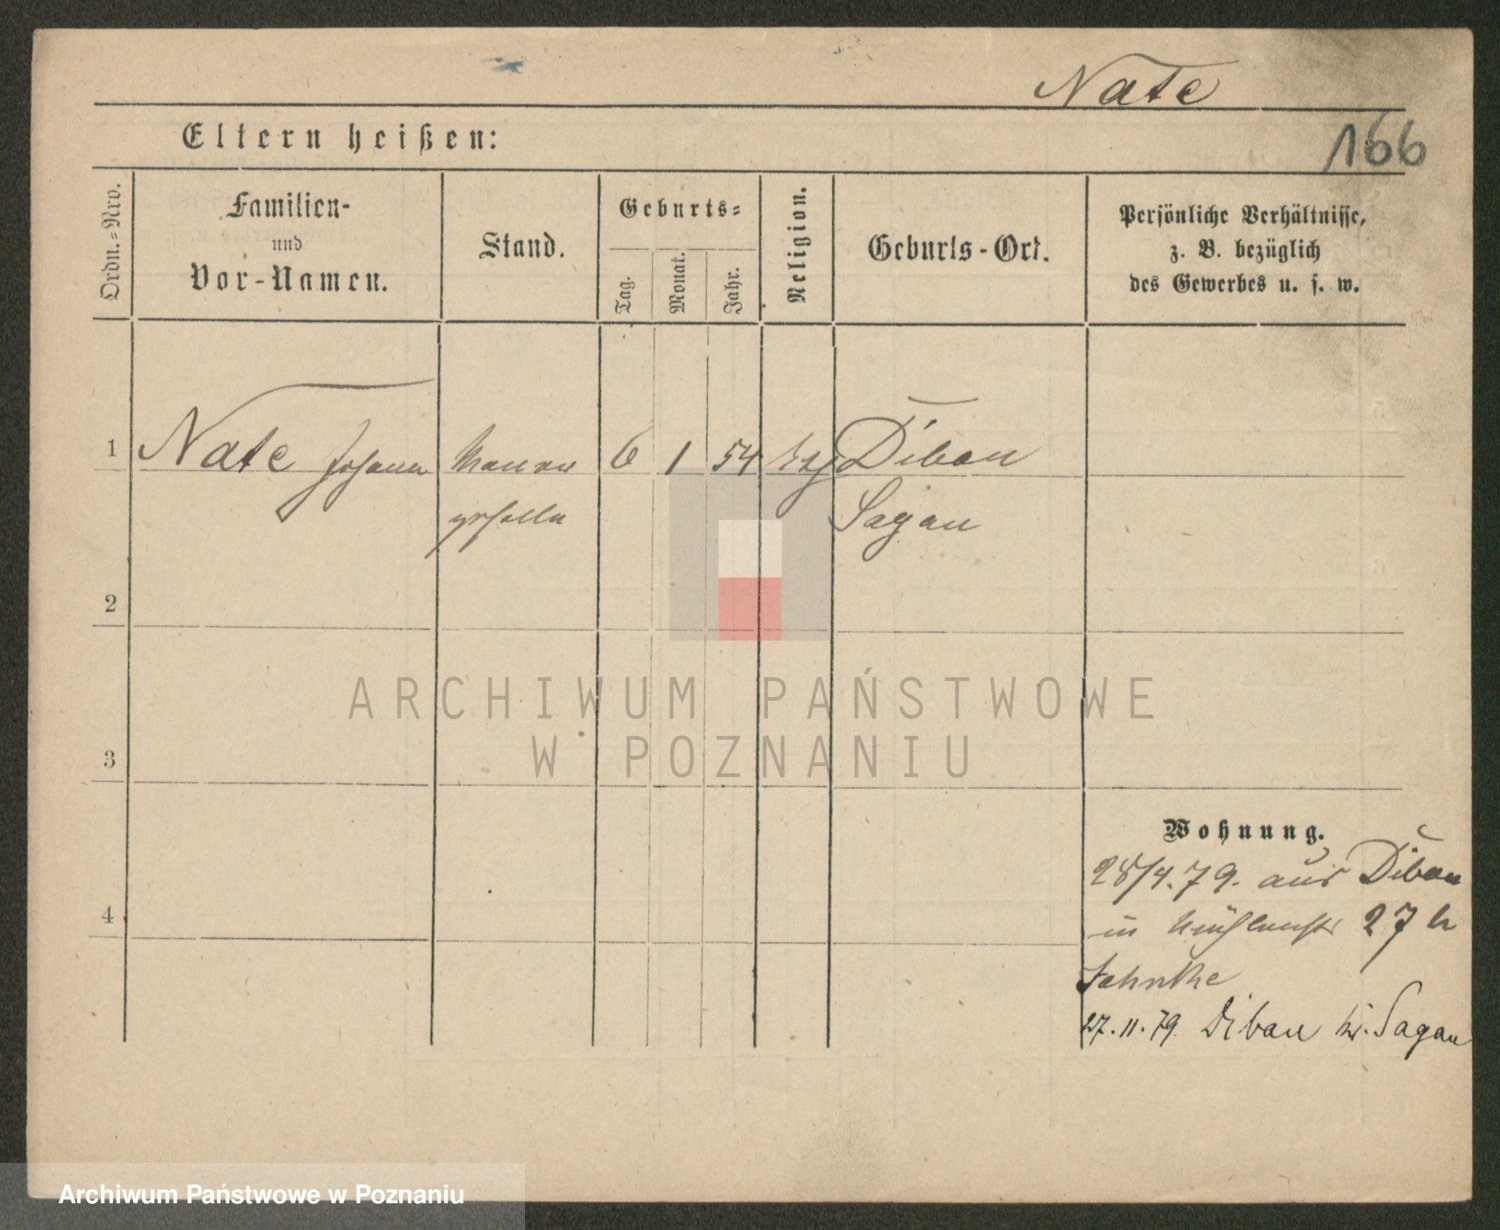 Nate
166
Eltern heißen:
Ordn.-Nro.
Familien-
und
Vor-Namen.
Stand.
Geburts-
Tag.
Monat.
Jahr.
Religion.
Geburts-Ort.
Persönliche Verhältnisse,
z. B. bezüglich
des Gewerbes u. s. w.
1 Nate Johann Maurer 6 1 54 Diban
geselle Sagan
2
3
4
ARCHIWUM PAŃSTWOWE
W POZNANIU
Wohnung.
28/4.79. aus Diban
in Mühlenstr 27 b
Jahnke
27.11.79 Diban Kr. Sagan
Archiwum Państwowe w Poznaniu